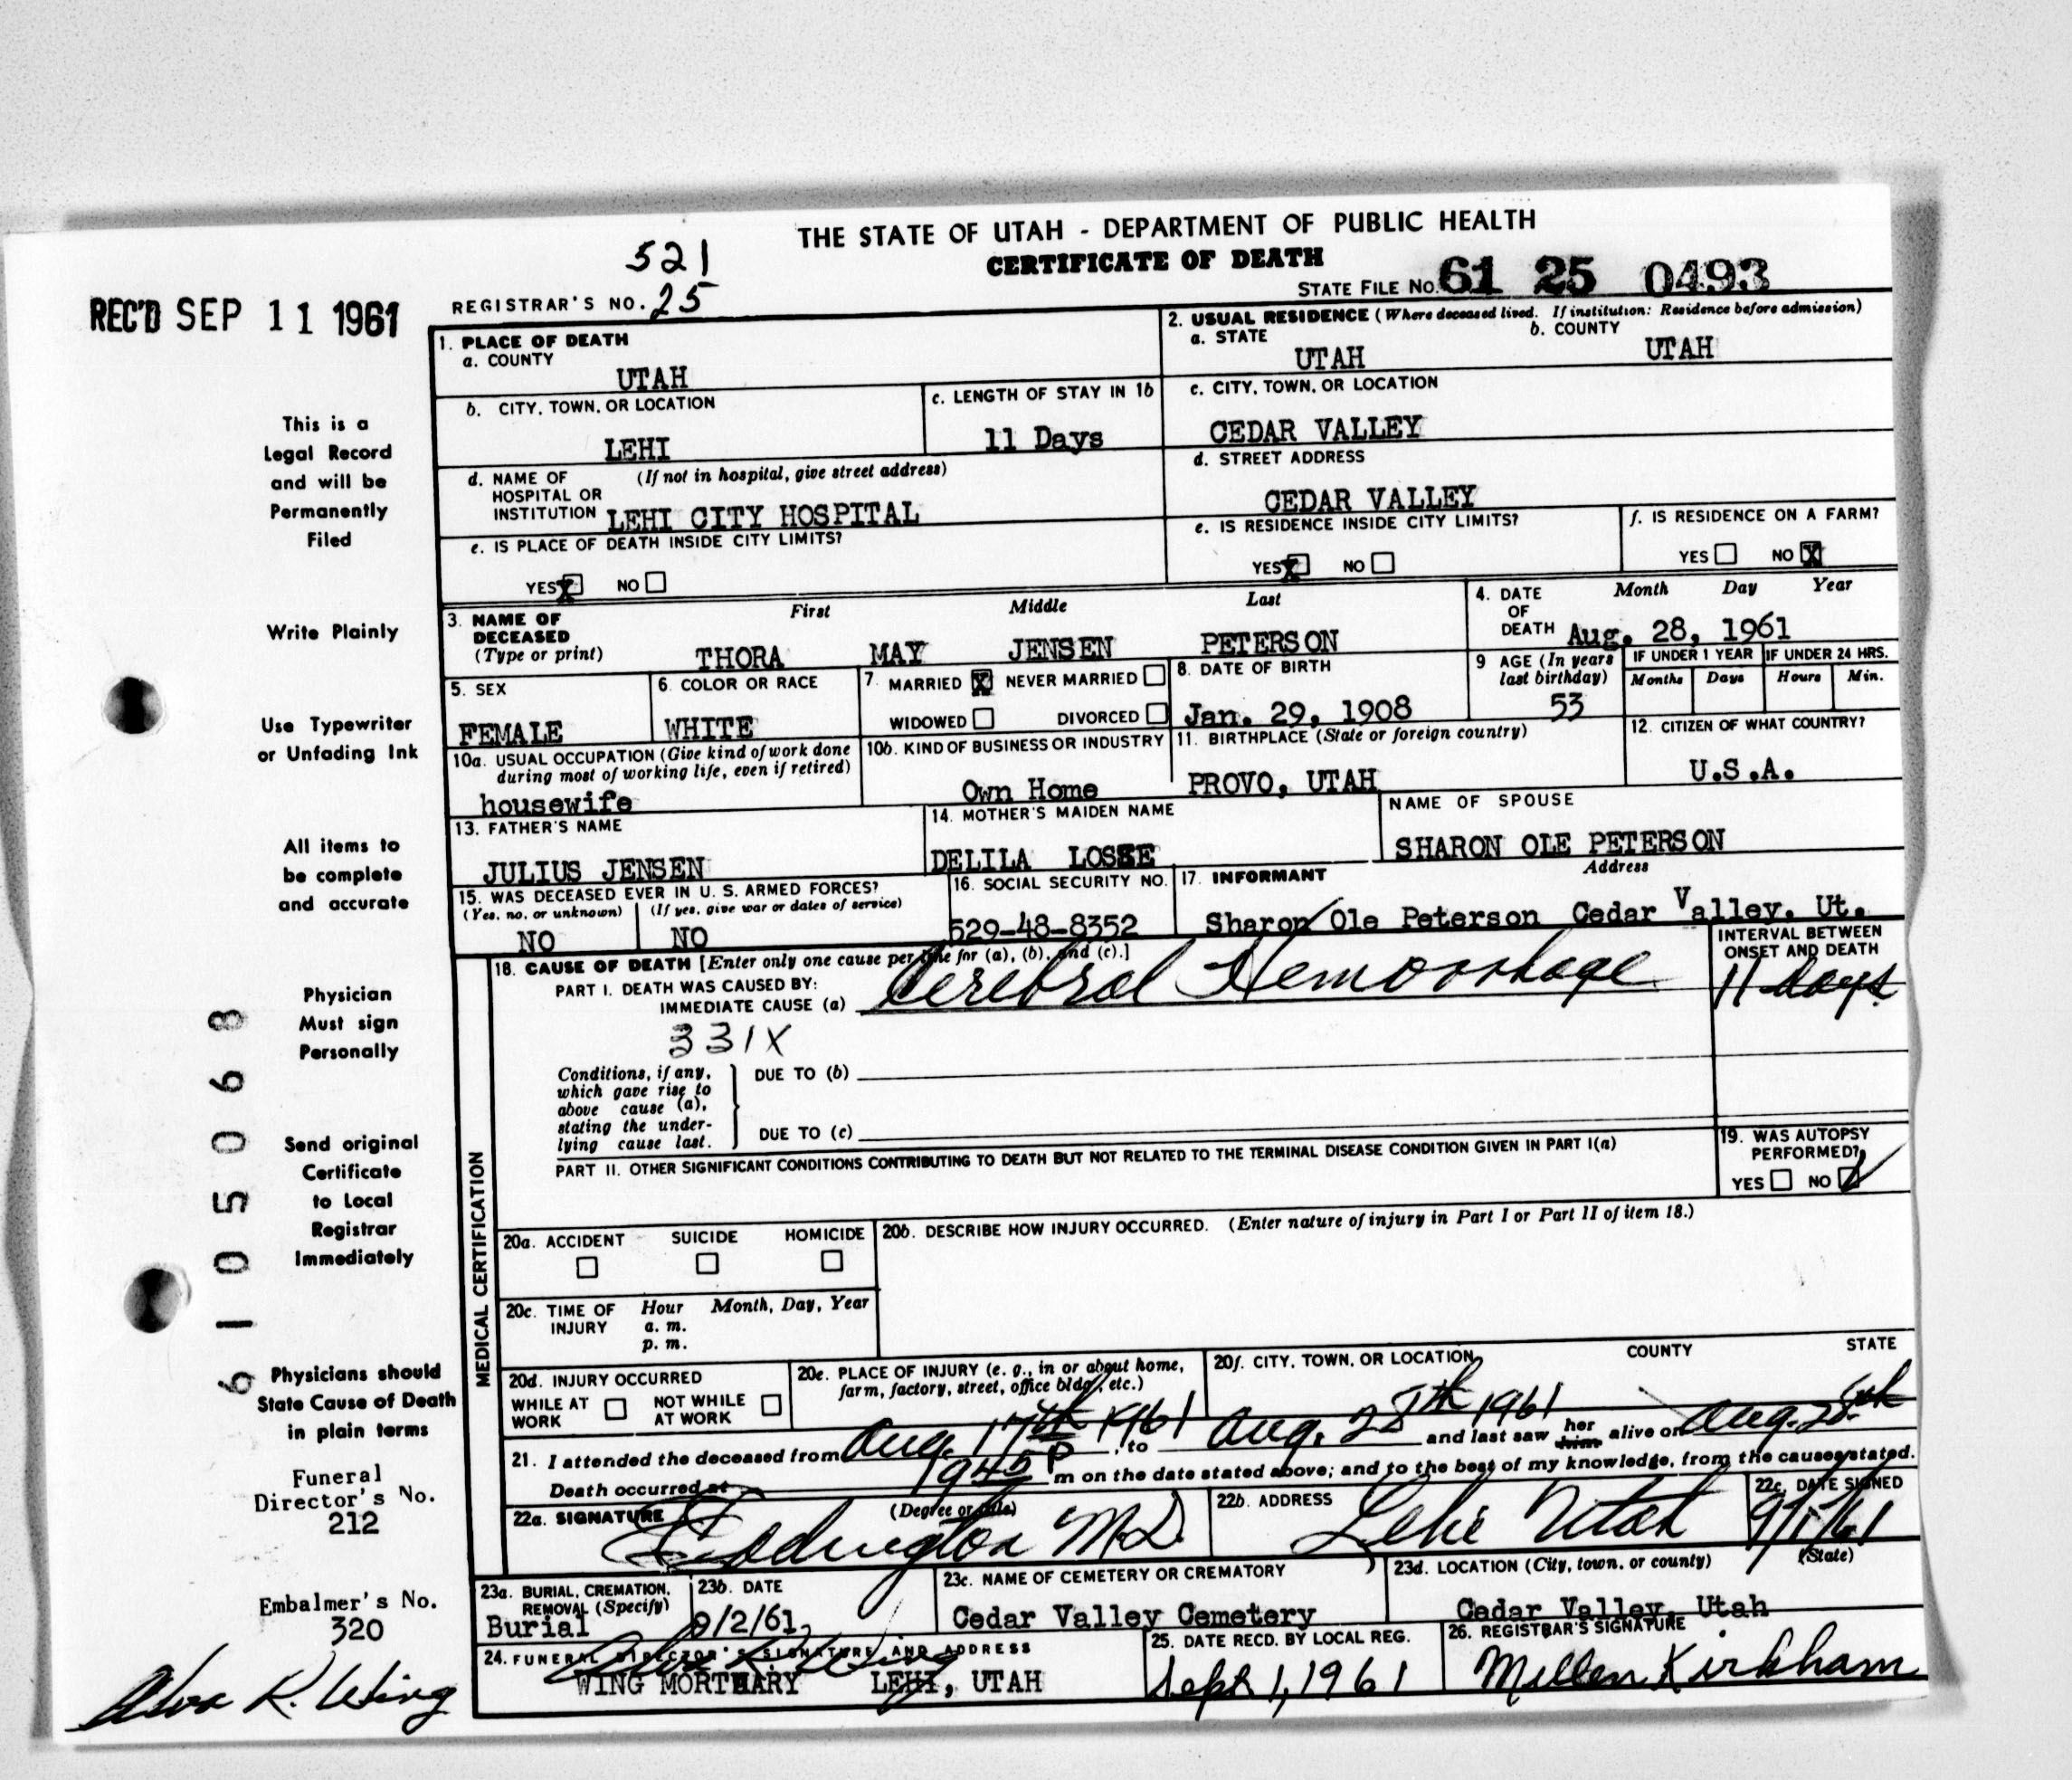 THE STATE OF UTAH - DEPARTMENT OF PUBLIC HEALTH
CERTIFICATE OF DEATH
521
REGISTRAR'S NO. 25
STATE FILE NO. 61 25 0493
REC'D SEP 11 1961
1. PLACE OF DEATH
a. COUNTY
UTAH
2. USUAL RESIDENCE (Where deceased lived. If institution: Residence before admission)
a. STATE
UTAH
b. COUNTY
UTAH
b. CITY, TOWN, OR LOCATION
LEHI
c. LENGTH OF STAY IN 1b
11 Days
c. CITY, TOWN, OR LOCATION
CEDAR VALLEY
d. NAME OF HOSPITAL OR INSTITUTION (If not in hospital, give street address)
LEHI CITY HOSPITAL
d. STREET ADDRESS
CEDAR VALLEY
e. IS PLACE OF DEATH INSIDE CITY LIMITS?
YES X NO
e. IS RESIDENCE INSIDE CITY LIMITS?
YES X NO
f. IS RESIDENCE ON A FARM?
YES NO X
3. NAME OF DECEASED (Type or print)
First Middle Last
THORA MAY JENSEN PETERSON
4. DATE OF DEATH
Month Day Year
Aug. 28, 1961
5. SEX
FEMALE
6. COLOR OR RACE
WHITE
7. MARRIED X NEVER MARRIED
WIDOWED DIVORCED
8. DATE OF BIRTH
Jan. 29, 1908
9 AGE (In years last birthday)
53
IF UNDER 1 YEAR
Months Days
IF UNDER 24 HRS.
Hours Min.
10a. USUAL OCCUPATION (Give kind of work done during most of working life, even if retired)
housewife
10b. KIND OF BUSINESS OR INDUSTRY
Own Home
11. BIRTHPLACE (State or foreign country)
PROVO, UTAH
12. CITIZEN OF WHAT COUNTRY?
U.S.A.
13. FATHER'S NAME
JULIUS JENSEN
14. MOTHER'S MAIDEN NAME
DELILA LOSEE
NAME OF SPOUSE
SHARON OLE PETERSON
15. WAS DECEASED EVER IN U. S. ARMED FORCES?
(Yes, no, or unknown) (If yes, give war or dates of service)
NO NO
16. SOCIAL SECURITY NO.
529-48-8352
17. INFORMANT Address
Sharon Ole Peterson Cedar Valley, Ut.
18. CAUSE OF DEATH [Enter only one cause per line for (a), (b), and (c).]
PART I. DEATH WAS CAUSED BY:
IMMEDIATE CAUSE (a) Cerebral Hemorrhage
INTERVAL BETWEEN ONSET AND DEATH
11 days
331X
Conditions, if any, which gave rise to above cause (a), stating the underlying cause last.
DUE TO (b)
DUE TO (c)
PART II. OTHER SIGNIFICANT CONDITIONS CONTRIBUTING TO DEATH BUT NOT RELATED TO THE TERMINAL DISEASE CONDITION GIVEN IN PART I(a)
19. WAS AUTOPSY PERFORMED?
YES NO ✓
MEDICAL CERTIFICATION
20a. ACCIDENT SUICIDE HOMICIDE
20b. DESCRIBE HOW INJURY OCCURRED. (Enter nature of injury in Part I or Part II of item 18.)
20c. TIME OF INJURY
Hour Month, Day, Year
a. m.
p. m.
20d. INJURY OCCURRED
WHILE AT WORK NOT WHILE AT WORK
20e. PLACE OF INJURY (e. g., in or about home, farm, factory, street, office bldg., etc.)
20f. CITY, TOWN, OR LOCATION COUNTY STATE
21. I attended the deceased from Aug. 17th 1961, to Aug. 28th 1961 and last saw her him alive on Aug. 28th
Death occurred at 1945 P m on the date stated above; and to the best of my knowledge, from the causes stated.
22a. SIGNATURE (Degree or title)
Eddington M.D.
22b. ADDRESS
Lehi Utah
22c. DATE SIGNED
9/1/61
23a. BURIAL, CREMATION, REMOVAL (Specify)
Burial
23b. DATE
9/2/61
23c. NAME OF CEMETERY OR CREMATORY
Cedar Valley Cemetery
23d. LOCATION (City, town, or county) (State)
Cedar Valley, Utah
24. FUNERAL DIRECTOR'S SIGNATURE AND ADDRESS
Alva R. Wing
WING MORTUARY LEHI, UTAH
25. DATE RECD. BY LOCAL REG.
Sept 1, 1961
26. REGISTRAR'S SIGNATURE
Millen Kirkham
This is a
Legal Record
and will be
Permanently
Filed
Write Plainly
Use Typewriter
or Unfading Ink
All items to
be complete
and accurate
Physician
Must sign
Personally
Send original
Certificate
to Local
Registrar
Immediately
Physicians should
State Cause of Death
in plain terms
Funeral
Director's No.
212
Embalmer's No.
320
Alva R. Wing
6105068